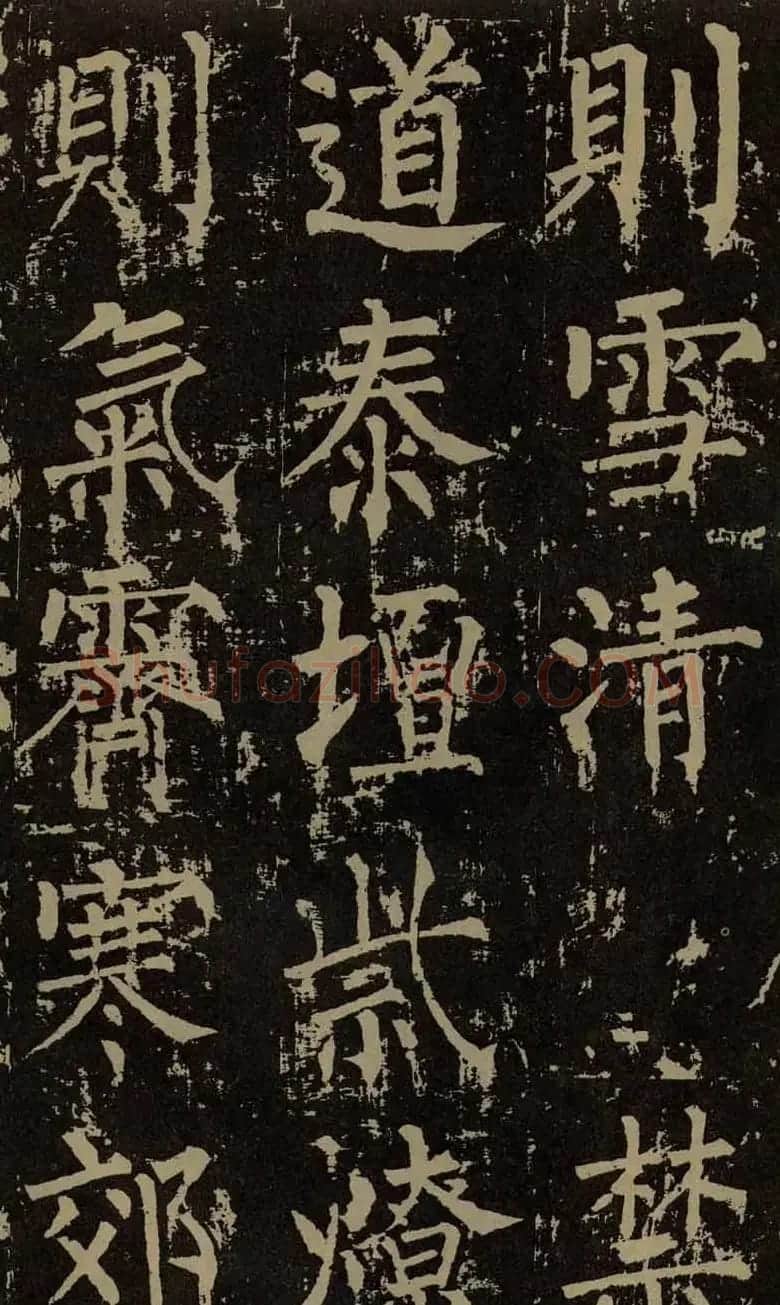 則雪清禁
道泰壇祡燎
則氣霽寒郊
Shufaziliao.COM